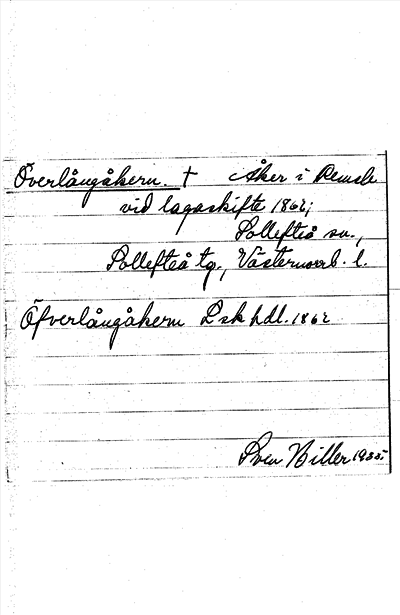 Överlångåkern. † Åker i Remsle
vid lagaskifte 1862;
Sollefteå sn.,
Sollefteå tg., Västernorrl. l.
Öfverlångåkern Lsk hdl. 1862
Sven Biller 1935.